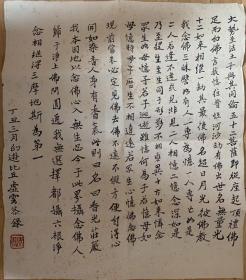 大勢至法王子與其同倫五十二菩薩即從座起頂禮佛
足而白佛言我憶往昔恒河沙劫有佛出世名無量光
十二如來相繼一劫其最後佛名超日月光彼佛教
我念佛三昧譬如有人一專為憶一人專忘如是
二人若逢不逢或見非見二人相憶二憶念深如是
乃至從生至生同於形影不相乖異十方如來憐念
眾生如母憶子若子逃逝雖憶何為子若憶母如
母憶時母子歷生不相違遠若眾生心憶佛念佛
現前當來必定見佛去佛不遠不假方便自得心
開如染香人身有香氣此則名曰香光莊嚴
我本因地以念佛心入無生忍今於此界攝念佛人
歸于淨土佛問圓通我無選擇都攝六根淨
念相繼得三摩地斯為第一
丁丑三月幻遊比丘虛雲恭錄